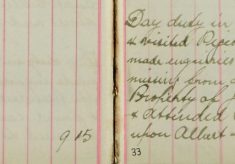 Day duty in
& visited Pigeo
made enquiries
missing from
Property of
& Attended
9 15
upon Albert
33